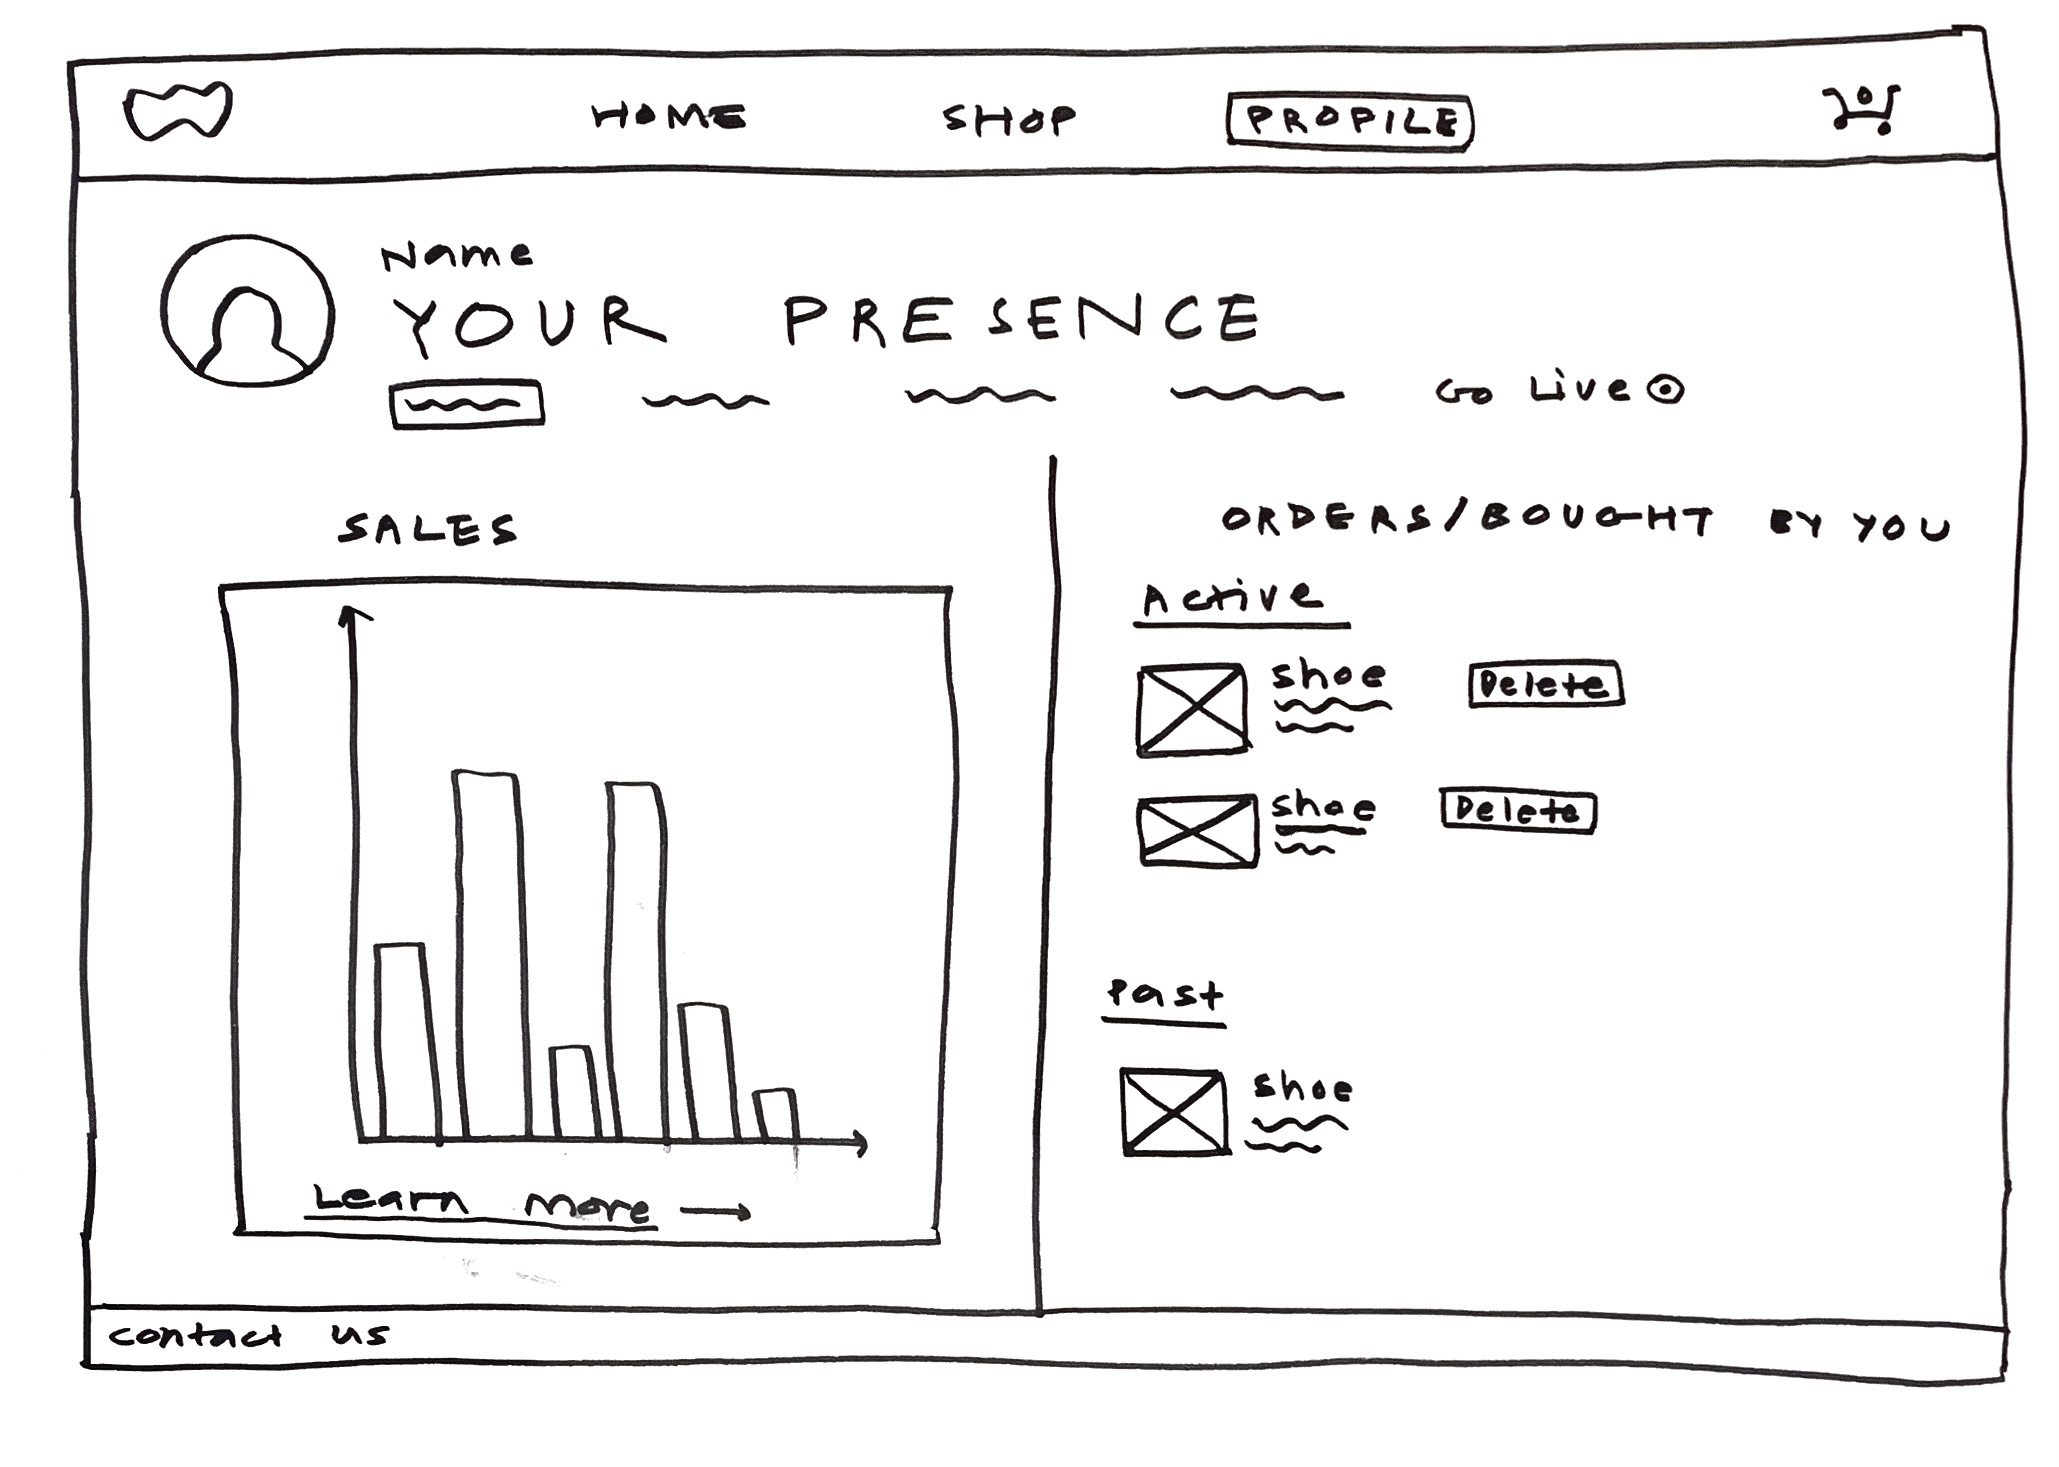 HOME SHOP PROFILE
Name
YOUR PRESENCE
Go Live
SALES
Learn more
ORDERS/BOUGHT BY YOU
Active
shoe Delete
shoe Delete
Past
shoe
contact us